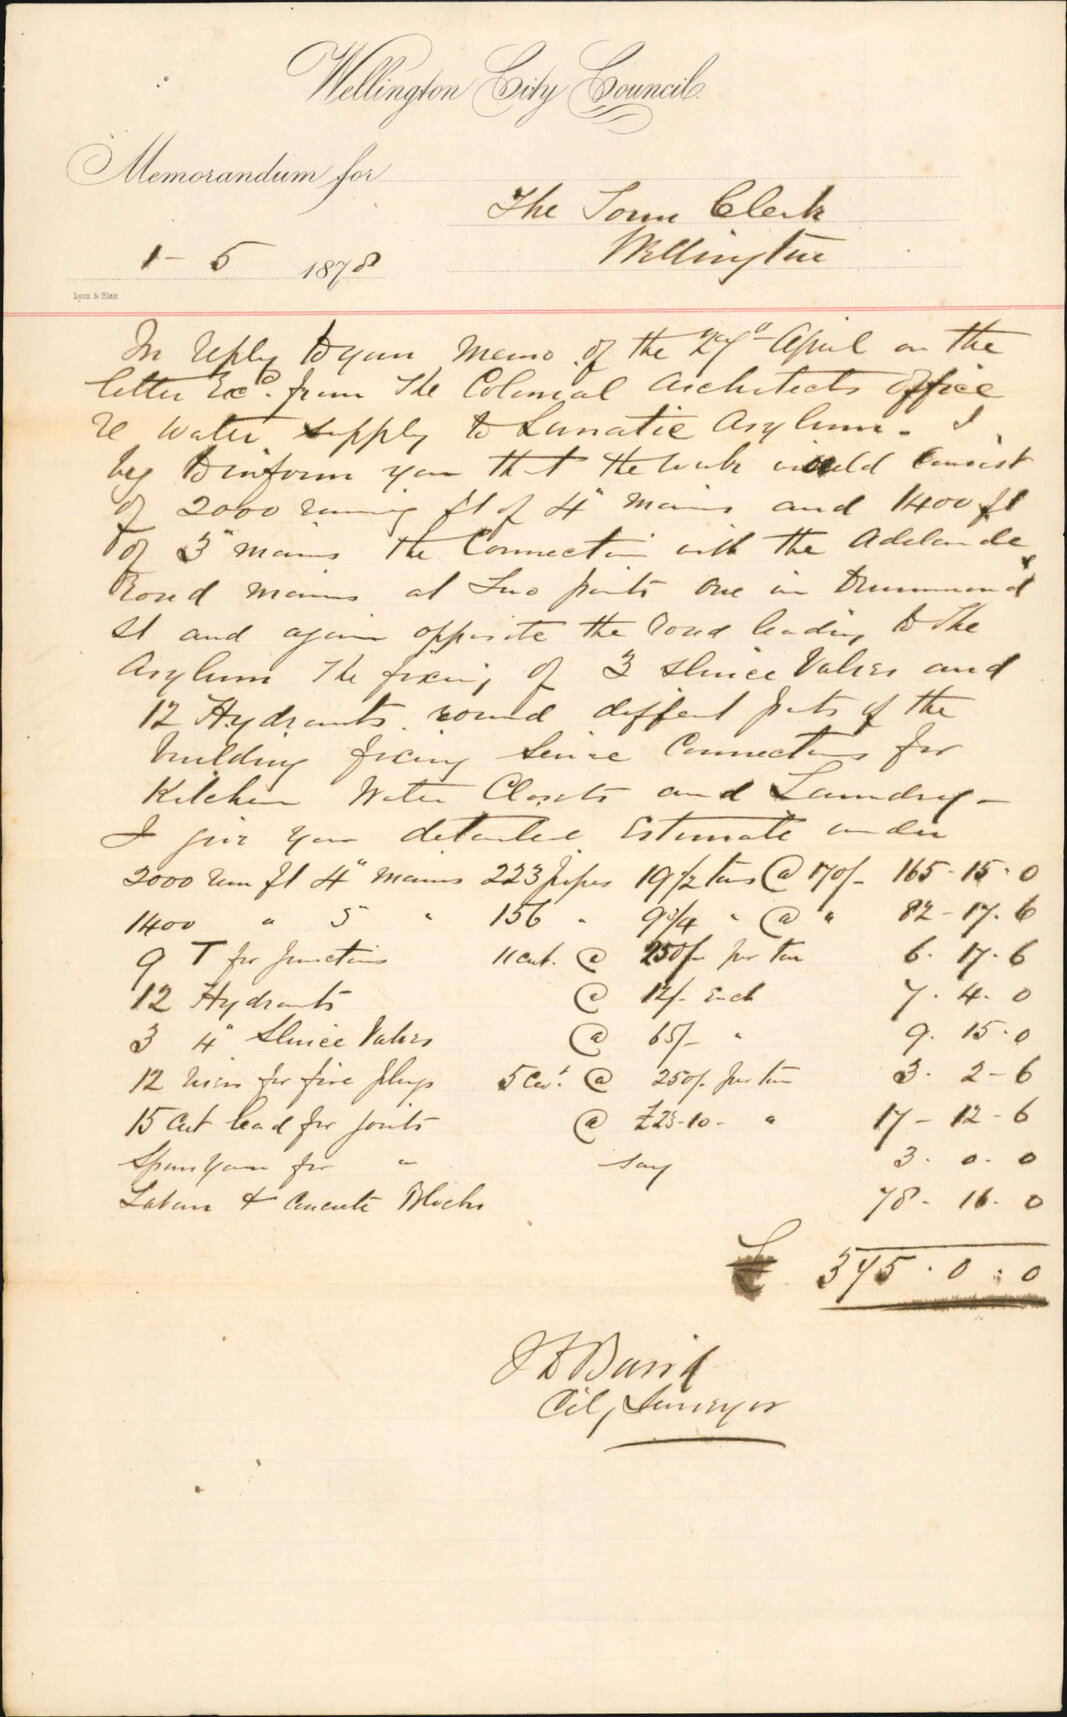 Wellington City Council.
Memorandum for
The Town Clerk
Wellington
1 - 5 1878
Lyon & Blair
In reply to your memo of the 29th April on the
letter &c. from The Colonial Architects office
re water supply to Lunatic Asylum. I
beg to inform you that the work would consist
of 2000 running ft of 4" mains and 1400 ft
of 3" mains the Connection with the Adelaide
Road mains at Two points one in Drummond
St and again opposite the road leading to The
Asylum The fixing of 3 Sluice Valves and
12 Hydrants round diffent parts of the
building fixing Service Connections for
Kitchen Water Closets and Laundry -
I give you detailed Estimate under
2000 run ft 4" mains 223 pipes 19 1/2 tons @ 170/- 165 - 15 - 0
1400 " 3" " 156 " 9 3/4 " @ " 82 - 17 . 6
9 T for junctions 11 cwt. @ 250/- per ton 6 . 17 . 6
12 Hydrants @ 12/- Each 7 . 4 . 0
3 4" Sluice Valves @ 65/- " 9 . 15 . 0
12 for fire plugs 5 cwt. @ 250/- per ton 3 . 2 - 6
15 cwt lead for joints @ £23-10- " 17 - 12 - 6
Spun Yarn for " say 3 . 0 . 0
Labour & Concrete Blocks 78 - 16 . 0
£ 375 . 0 : 0
J D Baird
City Surveyor